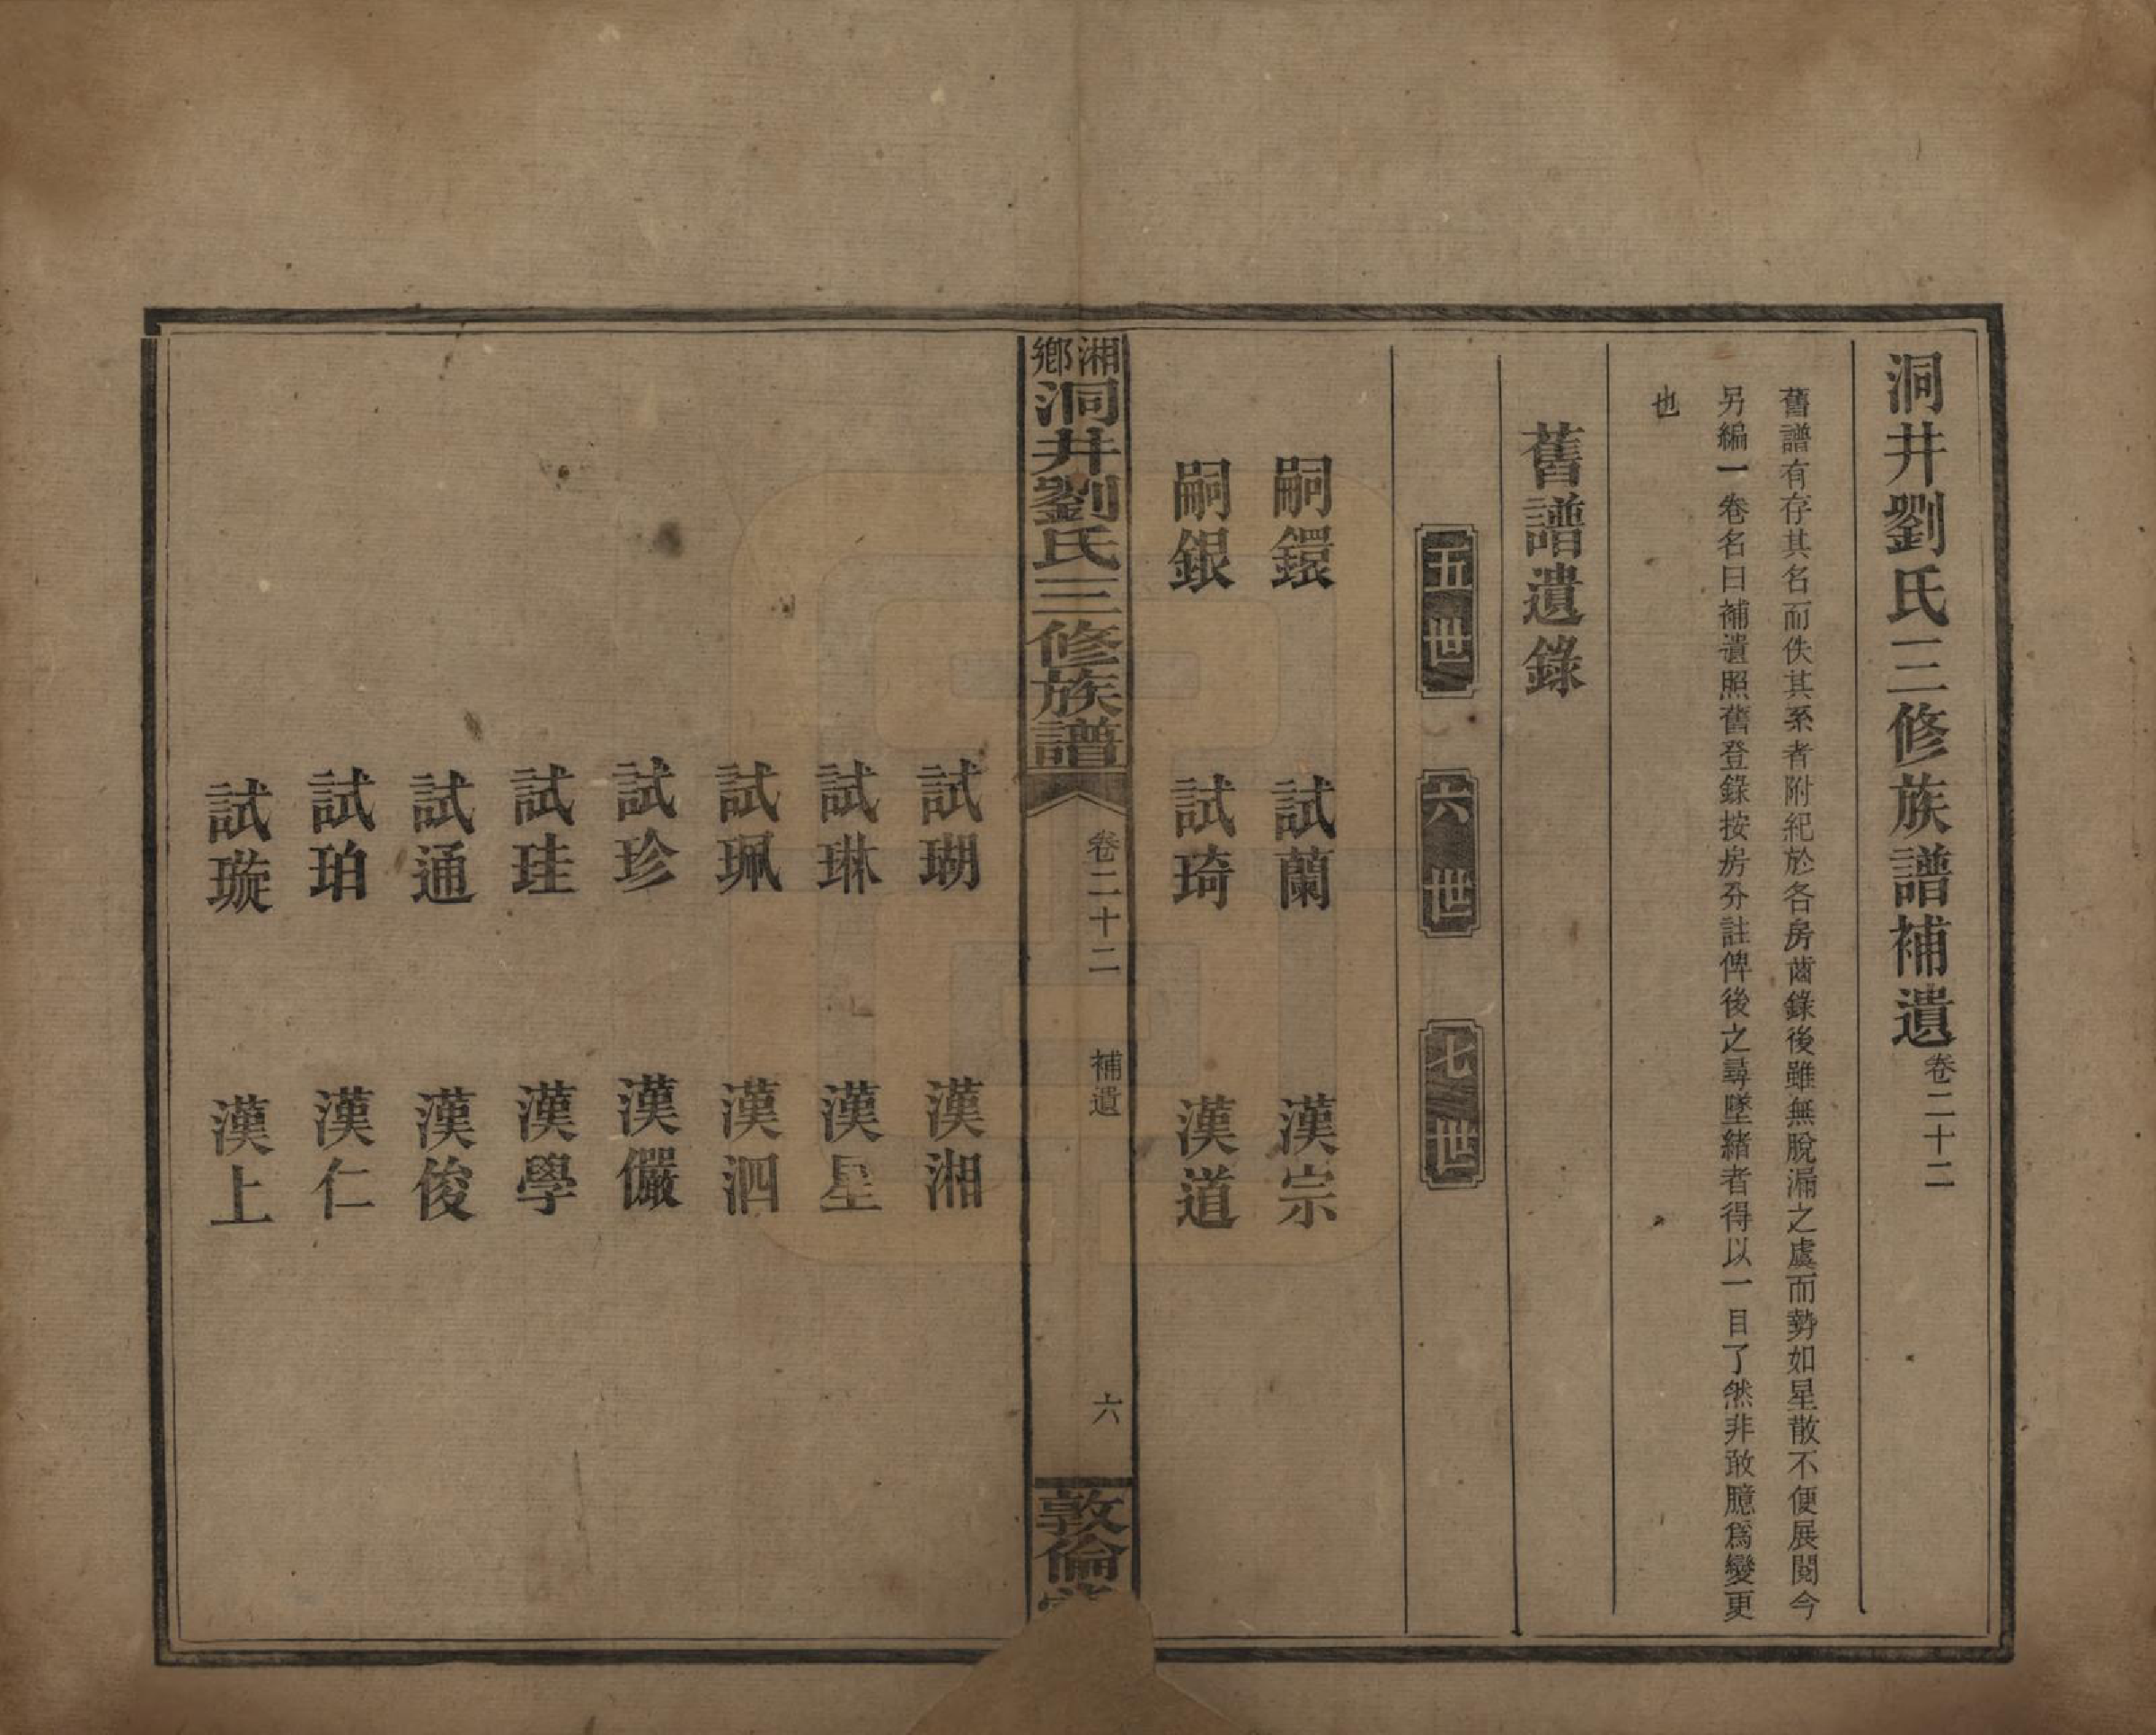 洞井劉氏三修族譜補遺卷二十二
舊譜有存其名而佚其系者附紀於各房齒錄後雖無脫漏之處而勢如星散不便展閱今
另編一卷名曰補遺照舊登錄按房分註俾後之尋墜緒者得以一目了然非敢臆爲變更
也
舊譜遺錄
五世 六世 七世
嗣鐶 試蘭 漢宗
嗣銀 試琦 漢道
湘鄉洞井劉氏三修族譜 卷二十二 補遺 六 敦倫
試瑚 漢湘
試琳 漢星
試珮 漢泗
試珍 漢儼
試珪 漢學
試通 漢俊
試珀 漢仁
試璇 漢上